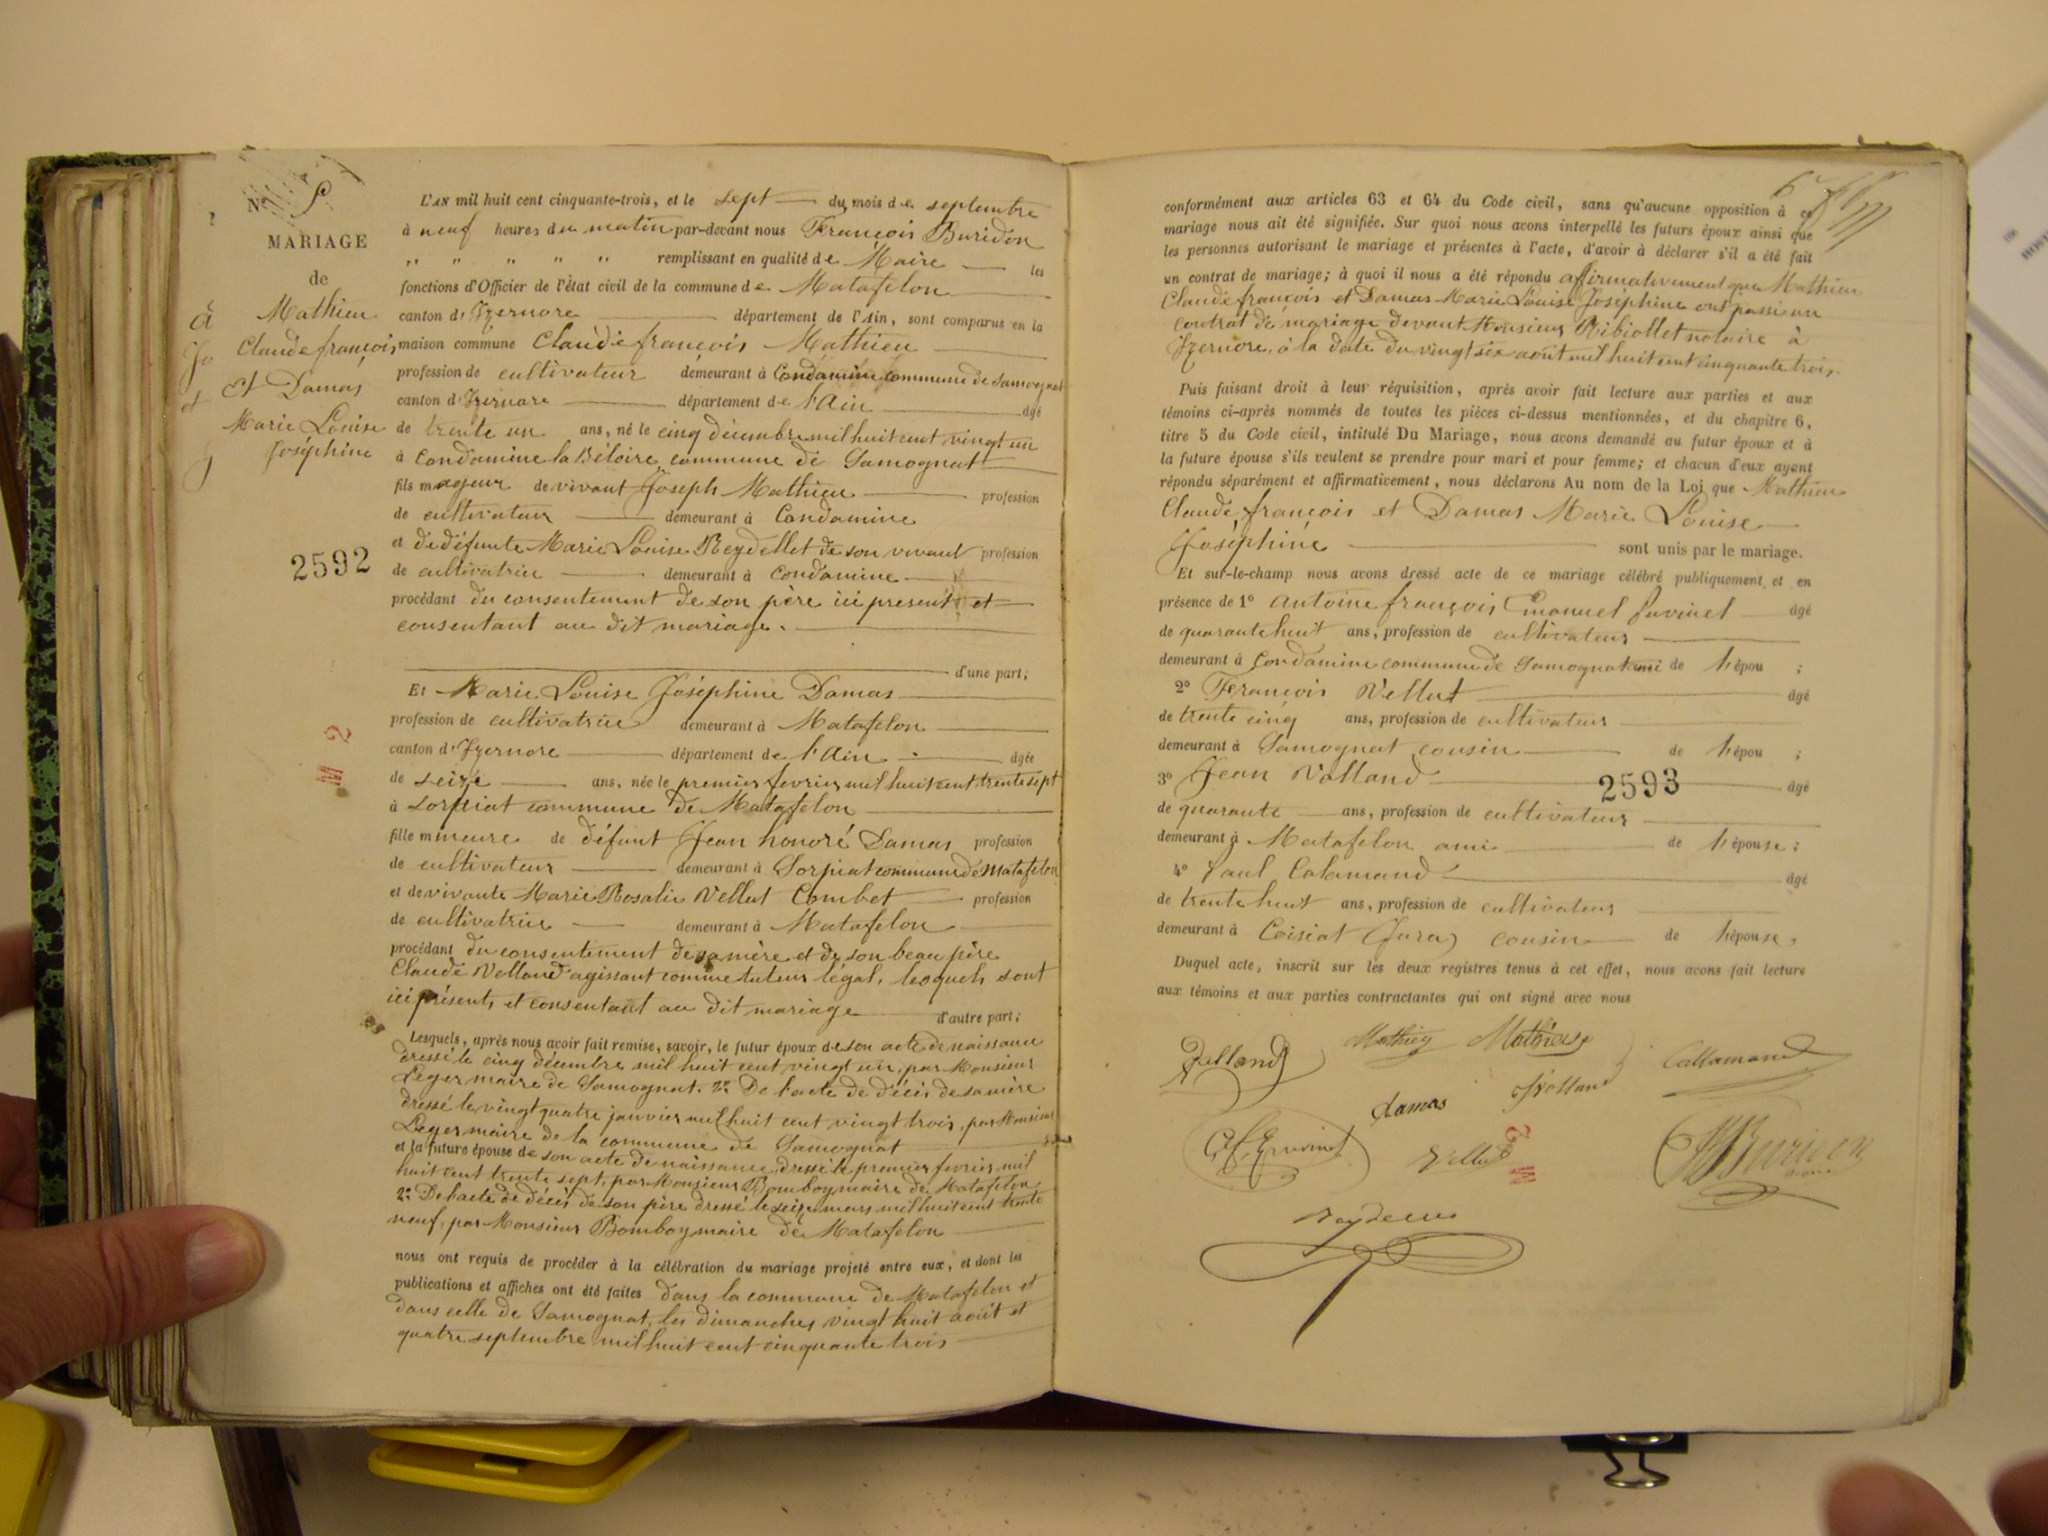 N° 5
MARIAGE
de
Mathieu
Claude françois
et Damas
Marie Louise
Joséphine
2592
L'AN mil huit cent cinquante-trois, et le sept du mois de septembre
à neuf heures du matin par-devant nous François Buridon
" " " " " remplissant en qualité de Maire les
fonctions d'Officier de l'état civil de la commune de Matafelon
canton d'Izernore département de l'Ain, sont comparus en la
maison commune Claude françois Mathieu
profession de cultivateur demeurant à Condamine commune de Samognat
canton d'Izernore département de l'Ain âgé
de trente un ans, né le cinq décembre mil huit cent vingt un
à Condamine la Béloire commune de Samognat
fils mageur de vivant Joseph Mathieu profession
de cultivateur demeurant à Condamine
et de défunte Marie Louise Reydellet de son vivant profession
de cultivatrice demeurant à Condamine
procédant du consentement de son père ici present et
consentant au dit mariage.
d'une part;
Et Marie Louise Joséphine Damas
profession de cultivatrice demeurant à Matafelon
canton d'Izernore département de l'Ain âgée
de seize ans, née le premier fevrier mil huit cent trente sept
à Sorpiat commune de Matafelon
fille mineure de défunt Jean honoré Damas profession
de cultivateur demeurant à Sorpiat commune de Matafelon
et de vivante Marie Rosalie Vellut Combet profession
de cultivatrice demeurant à Matafelon
procédant du consentement de sa mère et de son beau père
Claude Volland agissant comme tuteur légal, lesquels sont
ici présents et consentant au dit mariage
d'autre part;
Lesquels, après nous avoir fait remise, savoir, le futur époux de son acte de naissance
dressé le cinq décembre mil huit cent vingt un, par Monsieur
Leger maire de Samognat. 2° De l'acte de décès de sa mère
dressé le vingt quatre janvier mil huit cent vingt trois, par Monsieur
Leger maire de la commune de Samognat
et la future épouse de son acte de naissance dressé le premier fevrier mil
huit cent trente sept, par Monsieur Bomboy maire de Matafelon
2° De l'acte de décès de son père dressé le seize mars mil huit cent trente
neuf, par Monsieur Bomboy maire de Matafelon
nous ont requis de procéder à la célébration du mariage projeté entre eux, et dont les
publications et affiches ont été faites dans la commune de Matafelon et
dans celle de Samognat, les dimanches vingt huit août et
quatre septembre mil huit cent cinquante trois
conformément aux articles 63 et 64 du Code civil, sans qu'aucune opposition à ce
mariage nous ait été signifiée. Sur quoi nous avons interpellé les futurs époux ainsi que
les personnes autorisant le mariage et présentes à l'acte, d'avoir à déclarer s'il a été fait
un contrat de mariage; à quoi il nous a été répondu affirmativement que Mathieu
Claude françois et Damas Marie Louise Joséphine ont passé un
contrat de mariage devant Monsieur Ribiollet notaire à
Izernore, à la date du vingt six août mil huit cent cinquante trois.
Puis faisant droit à leur réquisition, après avoir fait lecture aux parties et aux
témoins ci-après nommés de toutes les pièces ci-dessus mentionnées, et du chapitre 6,
titre 5 du Code civil, intitulé Du Mariage, nous avons demandé au futur époux et à
la future épouse s'ils veulent se prendre pour mari et pour femme; et chacun d'eux ayant
répondu séparément et affirmativement, nous déclarons Au nom de la Loi que Mathieu
Claude françois et Damas Marie Louise
Joséphine sont unis par le mariage.
Et sur-le-champ nous avons dressé acte de ce mariage célébré publiquement et en
présence de 1° antoine françois Emanuel âgé
de quarante huit ans, profession de cultivateur
demeurant à Condamine commune de Samognat ami de l'épou ;
2° François Vellut âgé
de trente cinq ans, profession de cultivateur
demeurant à Samognat cousin de l'épou ;
3° Jean Volland âgé
2593
de quarante ans, profession de cultivateur
demeurant à Matafelon ami de l'épouse;
4° Paul Calamand âgé
de trente huit ans, profession de cultivateur
demeurant à Coisiat (Jura) cousin de l'épouse,
Duquel acte, inscrit sur les deux registres tenus à cet effet, nous avons fait lecture
aux témoins et aux parties contractantes qui ont signé avec nous
Volland Mathieu Mathieu Callamand
Damas Volland
Vellut Buridon